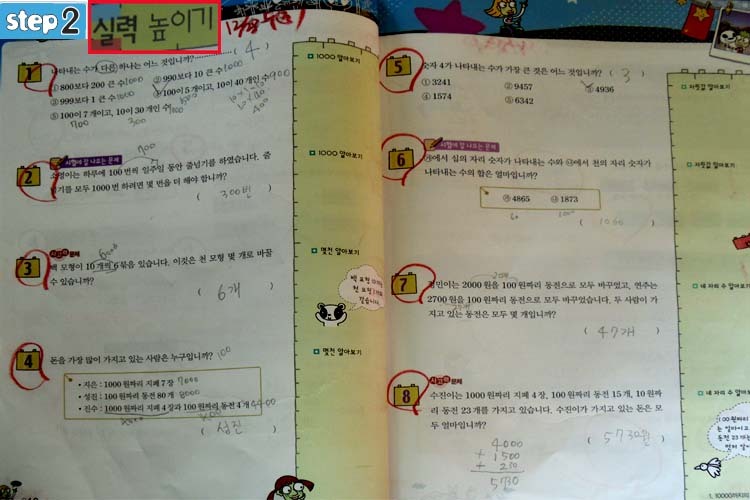 step 2 실력 높이기
1 나타내는 수가 다른 하나는 어느 것입니까? ( 4 )
①800보다 200 큰 수 1000 ②990보다 10 큰 수 1000
③999보다 1 큰 수 1000 ④100이 5개이고, 10이 40개인 수 900
⑤100이 7개이고, 10이 30개인 수
700 300
400
1000 알아보기
700
시험에 잘 나오는 문제
2 소영이는 하루에 100번씩 일주일 동안 줄넘기를 하였습니다. 줄
넘기를 모두 1000번 하려면 몇 번을 더 해야 합니까?
( 300번 )
1000 알아보기
사고력 문제
3 백 모형이 10개씩 6묶음 있습니다. 이것은 천 모형 몇 개로 바꿀
수 있습니까?
( 6개 )
몇천 알아보기
4 돈을 가장 많이 가지고 있는 사람은 누구입니까?
• 지은 : 1000원짜리 지폐 7장 7000
• 성진 : 100원짜리 동전 80개 8000
• 진수 : 1000원짜리 지폐 4장과 100원짜리 동전 4개 4400
( 성진 )
몇천 알아보기
5 숫자 4가 나타내는 수가 가장 큰 것은 어느 것입니까? ( 3 )
①3241 ②9457 ③4936
④1574 ⑤6342
자릿값 알아보기
시험에 잘 나오는 문제
6 ㉮에서 십의 자리 숫자가 나타내는 수와 ㉯에서 천의 자리 숫자가
나타내는 수의 합은 얼마입니까?
㉮ 4865 ㉯ 1873
60 1000
( 1060 )
자릿값 알아보기
7 경민이는 2000원을 100원짜리 동전으로 모두 바꾸었고, 연주는
2700원을 100원짜리 동전으로 모두 바꾸었습니다. 두 사람이 가
지고 있는 동전은 모두 몇 개입니까?
( 47개 )
네 자리 수 알아보기
사고력 문제
8 수진이는 1000원짜리 지폐 4장, 100원짜리 동전 15개, 10원짜
리 동전 23개를 가지고 있습니다. 수진이가 가지고 있는 돈은 모
두 얼마입니까?
( 5730원 )
4000
+ 1500
+ 230
5730
네 자리 수 알아보기